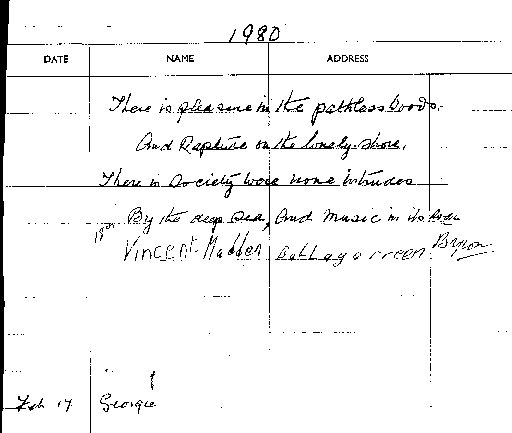 1980
DATE NAME ADDRESS
There is pleasure in the pathless woods.
And Rapture on the lonely shore,
There is Society were none intrudes
By the deep sea, And Music in its roar
Byron
Vincent Madden Ballagarreen
Feb 17 Georgie